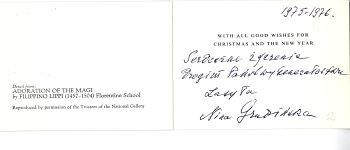 Detail from:
ADORATION OF THE MAGI
by FILIPPINO LIPPI (1457–1504) Florentine School
Reproduced by permission of the Trustees of the National Gallery
1975-1976.
WITH ALL GOOD WISHES FOR
CHRISTMAS AND THE NEW YEAR
Serdeczne życzenia
Drogim Państwu
Zasyła
Nina